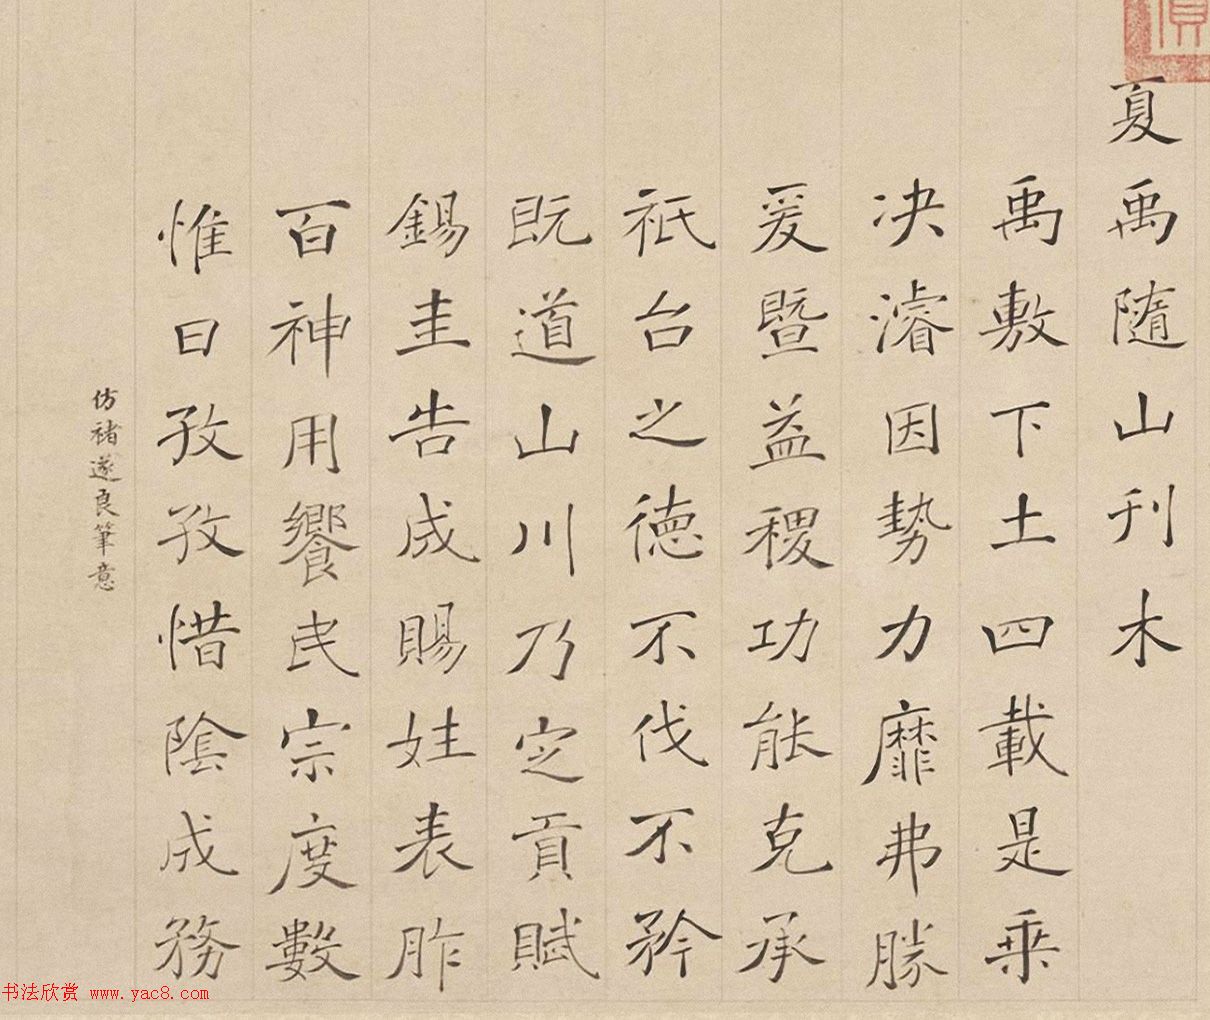 夏禹隨山刊木
禹敷下土四載是乗
决濬因勢力靡弗勝
爰暨益稷功能克承
祗台之德不伐不矜
既道山川乃定貢賦
錫圭告成賜姓表胙
百神用饗民宗度數
惟日孜孜惜陰成務
仿褚遂良筆意
书法欣赏 www.yac8.com